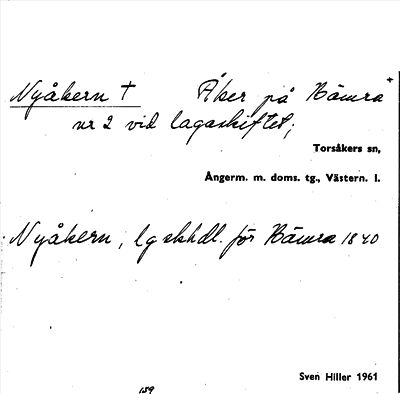 Nyåkern † Åker på Bämra+
nr 2 vid lagaskiftet;
Torsåkers sn,
Ångerm. m. doms. tg., Västern. l.
Nyåkern, lgskhdl. för Bämra 1840
Sven Hiller 1961
159